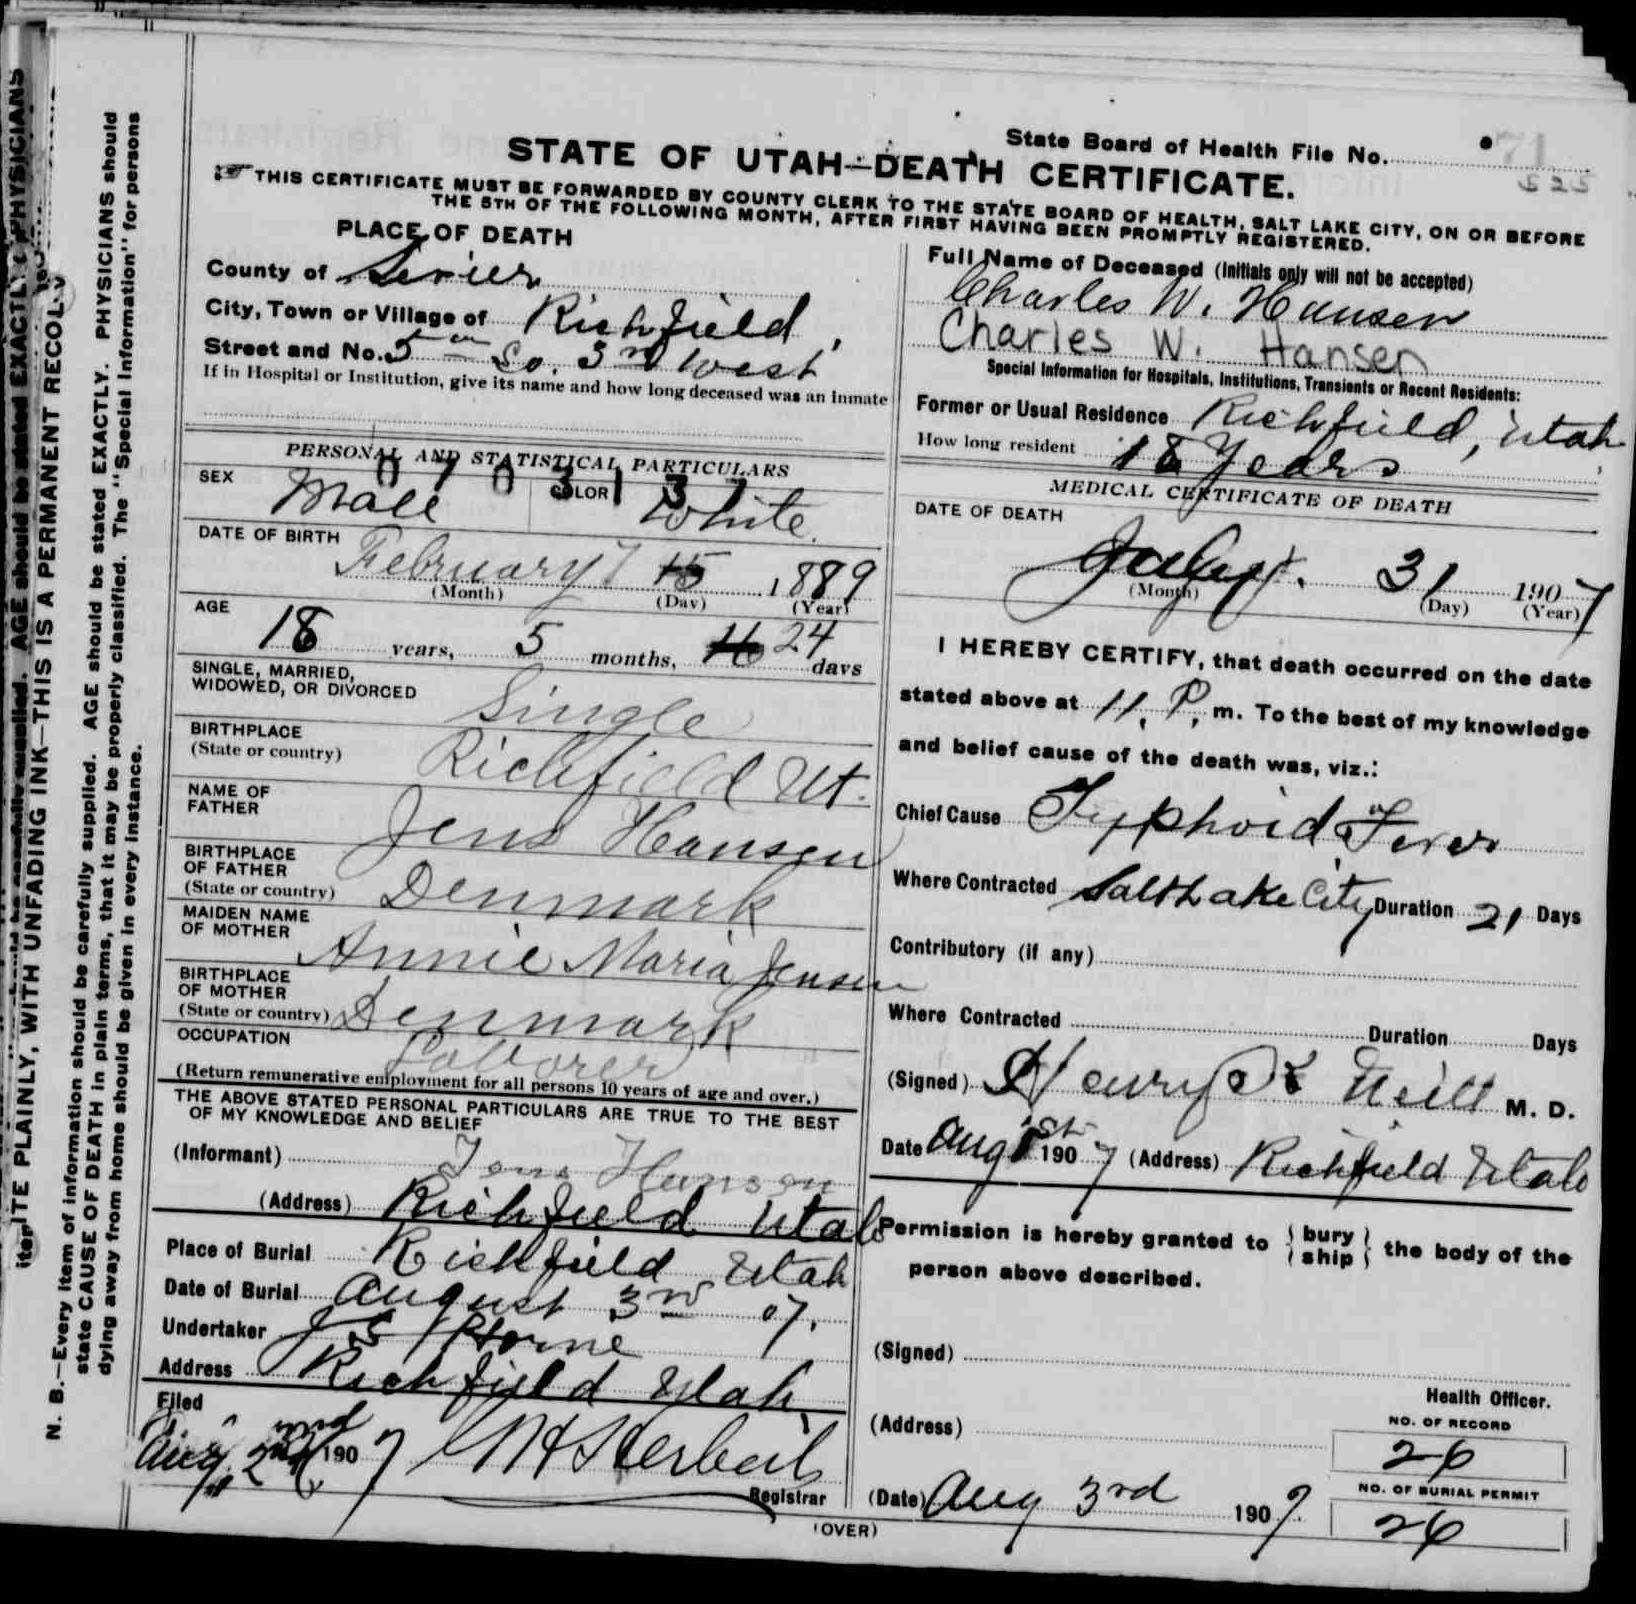 State Board of Health File No. 71
525
STATE OF UTAH—DEATH CERTIFICATE.
THIS CERTIFICATE MUST BE FORWARDED BY COUNTY CLERK TO THE STATE BOARD OF HEALTH, SALT LAKE CITY, ON OR BEFORE
THE 5TH OF THE FOLLOWING MONTH, AFTER FIRST HAVING BEEN PROMPTLY REGISTERED.
PLACE OF DEATH
County of Sevier
City, Town or Village of Richfield,
Street and No. 5 So. 3rd West
If in Hospital or Institution, give its name and how long deceased was an inmate
PERSONAL AND STATISTICAL PARTICULARS
0 7 0 3 1 3 7
SEX Male COLOR White.
DATE OF BIRTH February 7 15 1889
(Month) (Day) (Year)
AGE 18 years, 5 months, 16 24 days
SINGLE, MARRIED,
WIDOWED, OR DIVORCED Single
BIRTHPLACE
(State or country) Richfield Ut.
NAME OF
FATHER Jens Hansen
BIRTHPLACE
OF FATHER
(State or country) Denmark
MAIDEN NAME
OF MOTHER Annie Maria Jensen
BIRTHPLACE
OF MOTHER
(State or country) Denmark
OCCUPATION Laborer
(Return remunerative employment for all persons 10 years of age and over.)
THE ABOVE STATED PERSONAL PARTICULARS ARE TRUE TO THE BEST
OF MY KNOWLEDGE AND BELIEF
(Informant) Jens Hansen
(Address) Richfield Utah
Place of Burial Richfield Utah
Date of Burial August 3rd 07.
Undertaker J S Horne
Address Richfield Utah
Filed
Aug. 2nd 1907
Registrar
(OVER)
Full Name of Deceased (Initials only will not be accepted)
Charles W. Hansen
Charles W. Hansen
Special Information for Hospitals, Institutions, Transients or Recent Residents:
Former or Usual Residence Richfield, Utah
How long resident 18 Years
MEDICAL CERTIFICATE OF DEATH
DATE OF DEATH
July 31 1907
(Month) (Day) (Year)
I HEREBY CERTIFY, that death occurred on the date
stated above at 11. P. m. To the best of my knowledge
and belief cause of the death was, viz.:
Chief Cause Typhoid Fever
Where Contracted Salt Lake City Duration 21 Days
Contributory (if any)
Where Contracted Duration Days
(Signed) Henry K Neill M. D.
Date Aug 1st 1907 (Address) Richfield Utah
Permission is hereby granted to { bury / ship } the body of the
person above described.
(Signed)
Health Officer.
(Address)
NO. OF RECORD
26
NO. OF BURIAL PERMIT
26
(Date) Aug 3rd 1907.
ITE PLAINLY, WITH UNFADING INK—THIS IS A PERMANENT RECORD
N. B.—Every item of information should be carefully supplied. AGE should be stated EXACTLY. PHYSICIANS should
state CAUSE OF DEATH in plain terms, that it may be properly classified. The "Special Information" for persons
dying away from home should be given in every instance.